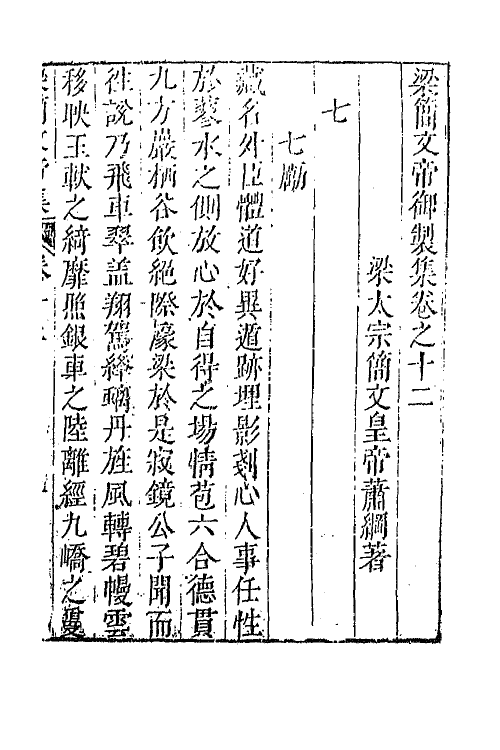 梁簡文帝御製集卷之十二
梁太宗簡文皇帝蕭綱著
七
七勵
藏名外臣體道好異遁跡埋影剗心人事任性
於蓼水之側放心於自得之場情苞六合德貫
九方巖栖谷飲絕際濠梁於是寂鏡公子聞而
往說乃飛車翠盖翔鴛綷驌丹旌風轉碧幔雲
移映玉軑之綺靡照銀車之陸離經九嶠之